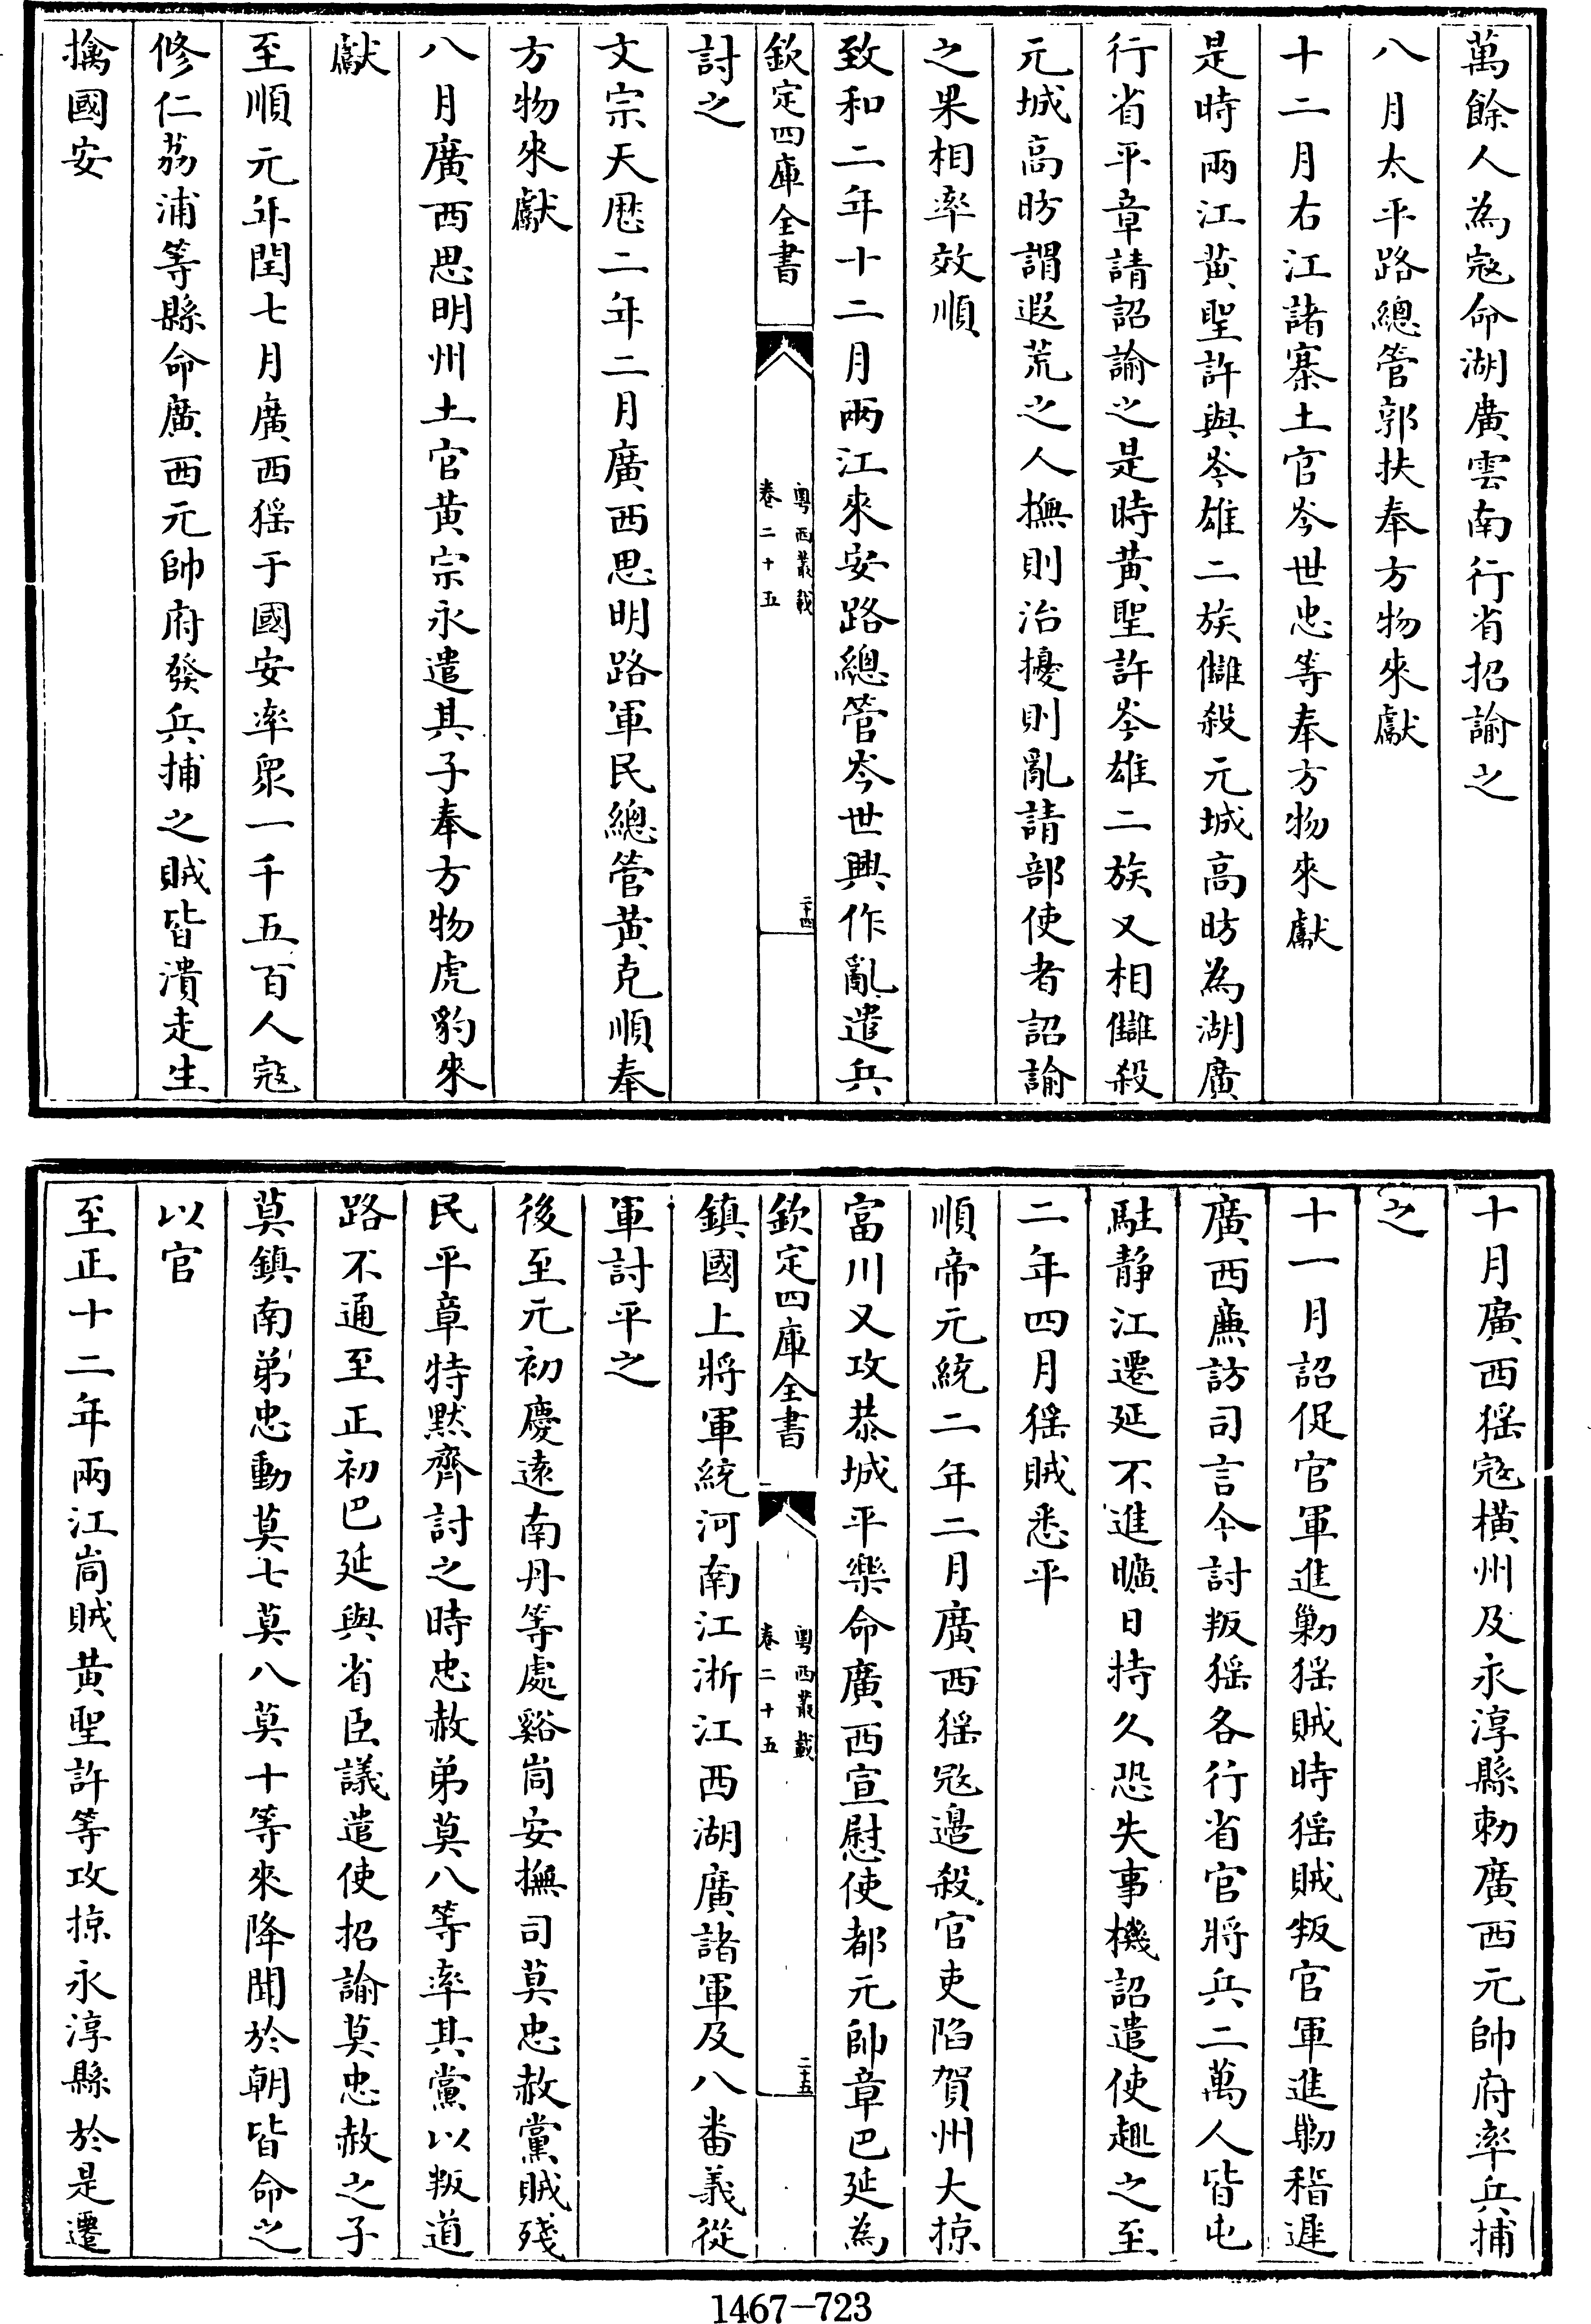 萬餘人為冦命湖廣雲南行省招諭之
八月太平路總管郭扶奉方物來獻
十二月右江諸寨土官岑世忠等奉方物來獻
是時兩江黄聖許與岑雄二族讎殺元城高昉為湖廣
行省平章請詔諭之是時黄聖許岑雄二族又相讎殺
元城高昉謂遐荒之人撫則治擾則亂請部使者詔諭
之果相率效順
致和二年十二月兩江來安路總管岑世興作亂遣兵
欽定四庫全書
粤西叢載
卷二十五
二十四
討之
文宗天厯二年二月廣西思明路軍民總管黄克順奉
方物來獻
八月廣西思明州土官黄宗永遣其子奉方物虎豹來
獻
至順元年閏七月廣西猺于國安率衆一千五百人冦
修仁荔浦等縣命廣西元帥府發兵捕之賊皆潰走生
擒國安
十月廣西猺冦横州及永淳縣勅廣西元帥府率兵捕
之
十一月詔促官軍進勦猺賊時猺賊叛官軍進勦稽遲
廣西廉訪司言今討叛猺各行省官將兵二萬人皆屯
駐静江遷延不進曠日持久恐失事機詔遣使趣之至
二年四月猺賊悉平
順帝元統二年二月廣西猺冦邉殺官吏陷賀州大掠
富川又攻恭城平樂命廣西宣慰使都元帥章巴延為
欽定四庫全書
粤西叢載
卷二十五
二十五
鎮國上將軍統河南江浙江西湖廣諸軍及八畨義從
軍討平之
後至元初慶逺南丹等處谿峝安撫司莫忠赦黨賊殘
民平章特黙齊討之時忠赦弟莫八等率其黨以叛道
路不通至正初巴延與省臣議遣使招諭莫忠赦之子
莫鎮南弟忠動莫七莫八莫十等來降聞於朝皆命之
以官
至正十二年兩江峝賊黄聖許等攻掠永淳縣於是遷
1467-723